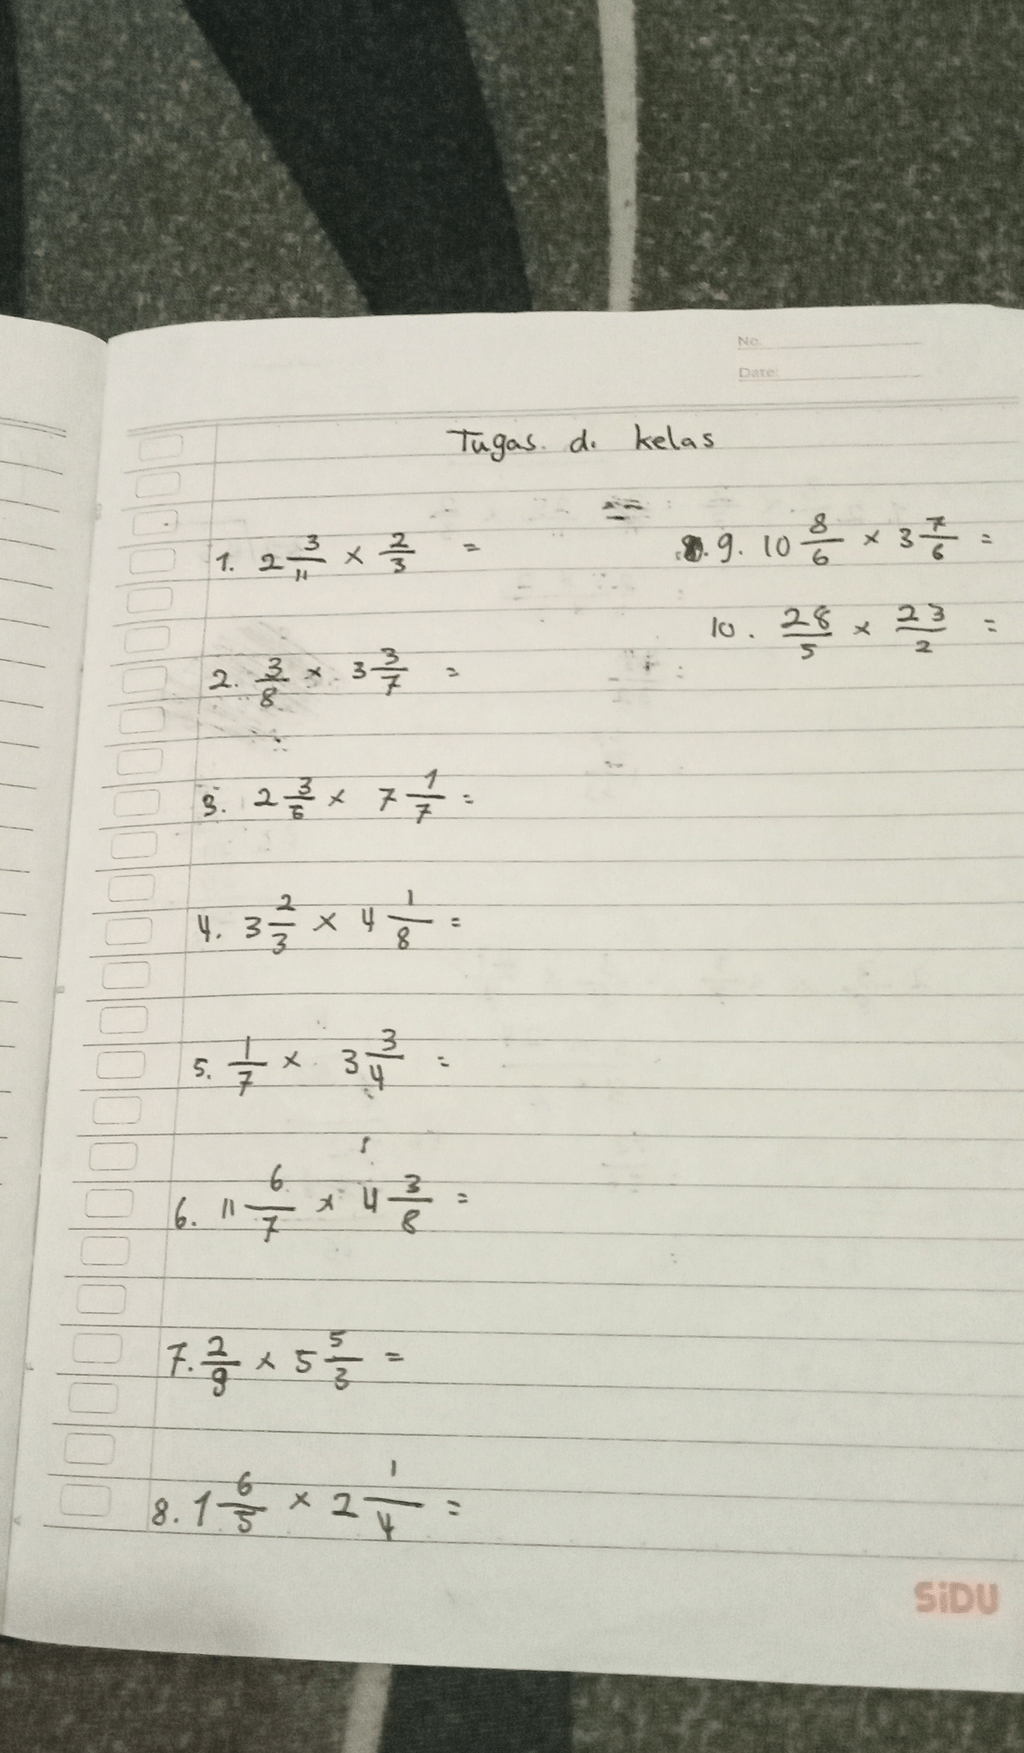 No.
Date:
Tugas di kelas
1. 2 3/11 × 2/3 =
2. 3/8 × 3 3/7 =
3. 2 3/5 × 7 1/7 =
4. 3 2/3 × 4 1/8 =
5. 1/7 × 3 3/4 =
6. 11 6/7 × 4 3/8 =
7. 2/9 × 5 5/3 =
8. 1 6/5 × 2 1/4 =
9. 10 8/6 × 3 7/6 =
10. 28/5 × 23/2 =
SiDU